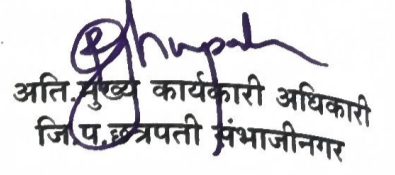 अति.मुख्य कार्यकारी अधिकारी
जि.प.छत्रपती संभाजीनगर